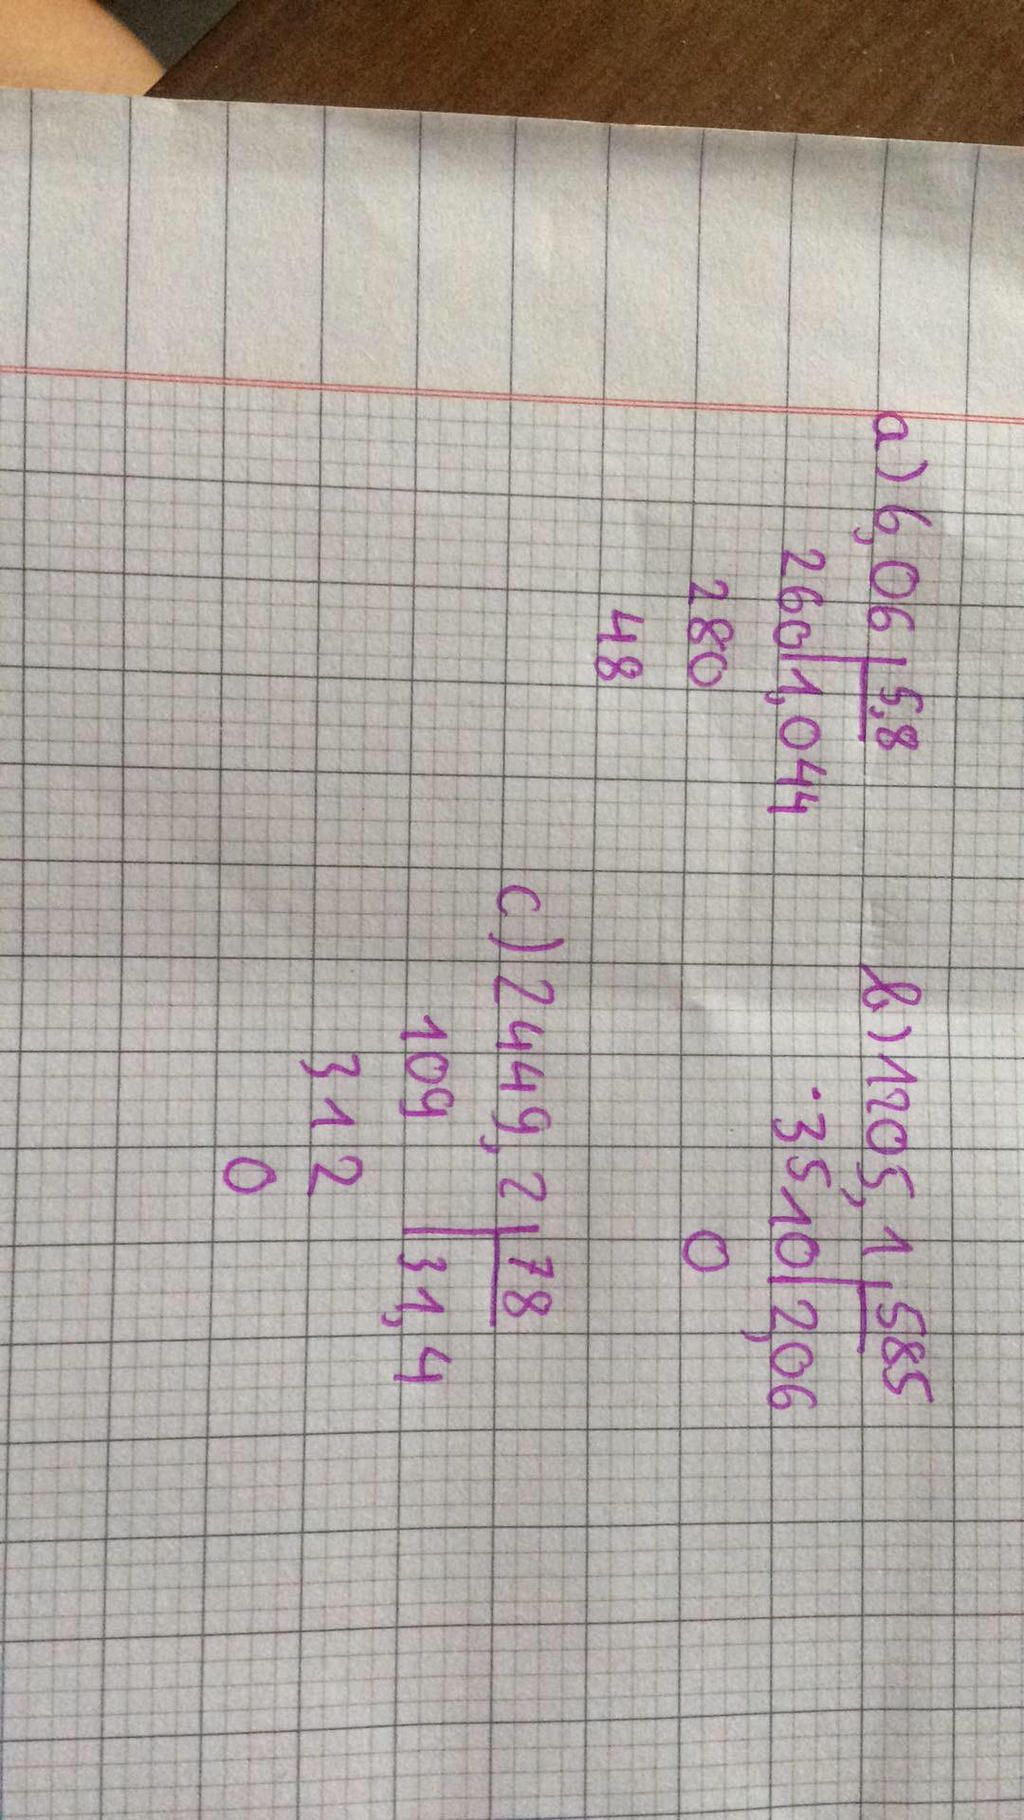 a) 6,06 5,8
260 1,044
280
48
b) 1205,1 585
3510 2,06
0
c) 2449,2 78
109 31,4
312
0